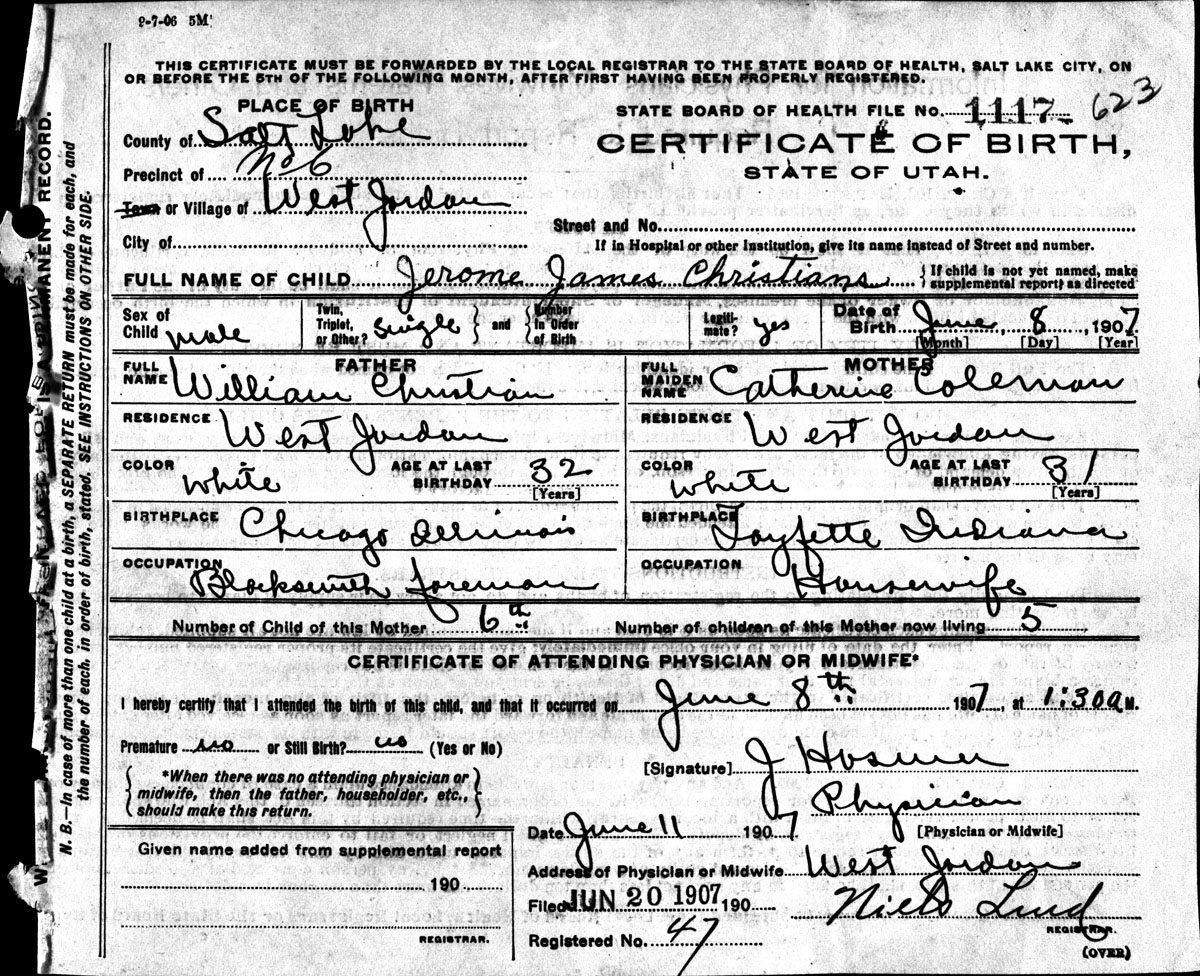 2-7-06 5M
THIS CERTIFICATE MUST BE FORWARDED BY THE LOCAL REGISTRAR TO THE STATE BOARD OF HEALTH, SALT LAKE CITY, ON
OR BEFORE THE 5TH OF THE FOLLOWING MONTH, AFTER FIRST HAVING BEEN PROPERLY REGISTERED.
PLACE OF BIRTH
County of Salt Lake
Precinct of No 6
Town or Village of West Jordan
City of
STATE BOARD OF HEALTH FILE No. 1117 623
CERTIFICATE OF BIRTH,
STATE OF UTAH.
Street and No.
If in Hospital or other Institution, give its name instead of Street and number.
FULL NAME OF CHILD Jerome James Christians { If child is not yet named, make
supplemental report, as directed
Sex of Child male
Twin, Triplet, or Other? single and Number in Order of Birth
Legitimate? yes
Date of Birth June 8 1907
[Month] [Day] [Year]
FATHER
FULL NAME William Christian
RESIDENCE West Jordan
COLOR white AGE AT LAST BIRTHDAY 32 [Years]
BIRTHPLACE Chicago Illinois
OCCUPATION Blacksmith foreman
MOTHER
FULL MAIDEN NAME Catherine Coleman
RESIDENCE West Jordan
COLOR white AGE AT LAST BIRTHDAY 31 [Years]
BIRTHPLACE Layfette Indiana
OCCUPATION Housewife
Number of Child of this Mother 6th Number of children of this Mother now living 5
CERTIFICATE OF ATTENDING PHYSICIAN OR MIDWIFE*
I hereby certify that I attended the birth of this child, and that it occurred on June 8th 1907, at 1:30a M.
Premature no or Still Birth? no (Yes or No)
{ *When there was no attending physician or
midwife, then the father, householder, etc.,
should make this return. }
[Signature] J Hosmer
Physician
[Physician or Midwife]
Date June 11 1907
Address of Physician or Midwife West Jordan
Filed JUN 20 1907 190 Niels Lind
REGISTRAR.
Registered No. 47
(OVER)
Given name added from supplemental report
190
REGISTRAR.
N. B.—In case of more than one child at a birth, a SEPARATE RETURN must be made for each, and
the number of each, in order of birth, stated. SEE INSTRUCTIONS ON OTHER SIDE.
IS A PERMANENT RECORD.